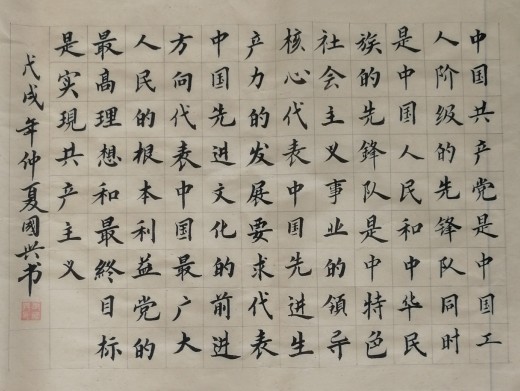 中国共产党是中国工
人阶级的先锋队同时
是中国人民和中华民
族的先鋒队是中特色
社会主义事业的領导
核心代表中国先进生
产力的发展要求代表
中国先进文化的前进
方向代表中国最广大
人民的根本利益党的
最高理想和最終目标
是实現共产主义
戊戌年仲夏國兴书